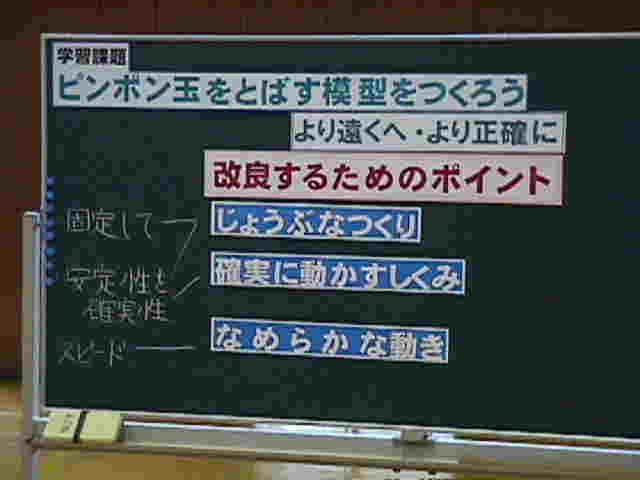 学習課題
ピンポン玉をとばす模型をつくろう
より遠くへ・より正確に
改良するためのポイント
固定して
じょうぶなつくり
安定性と
確実性
確実に動かすしくみ
スピード
なめらかな動き